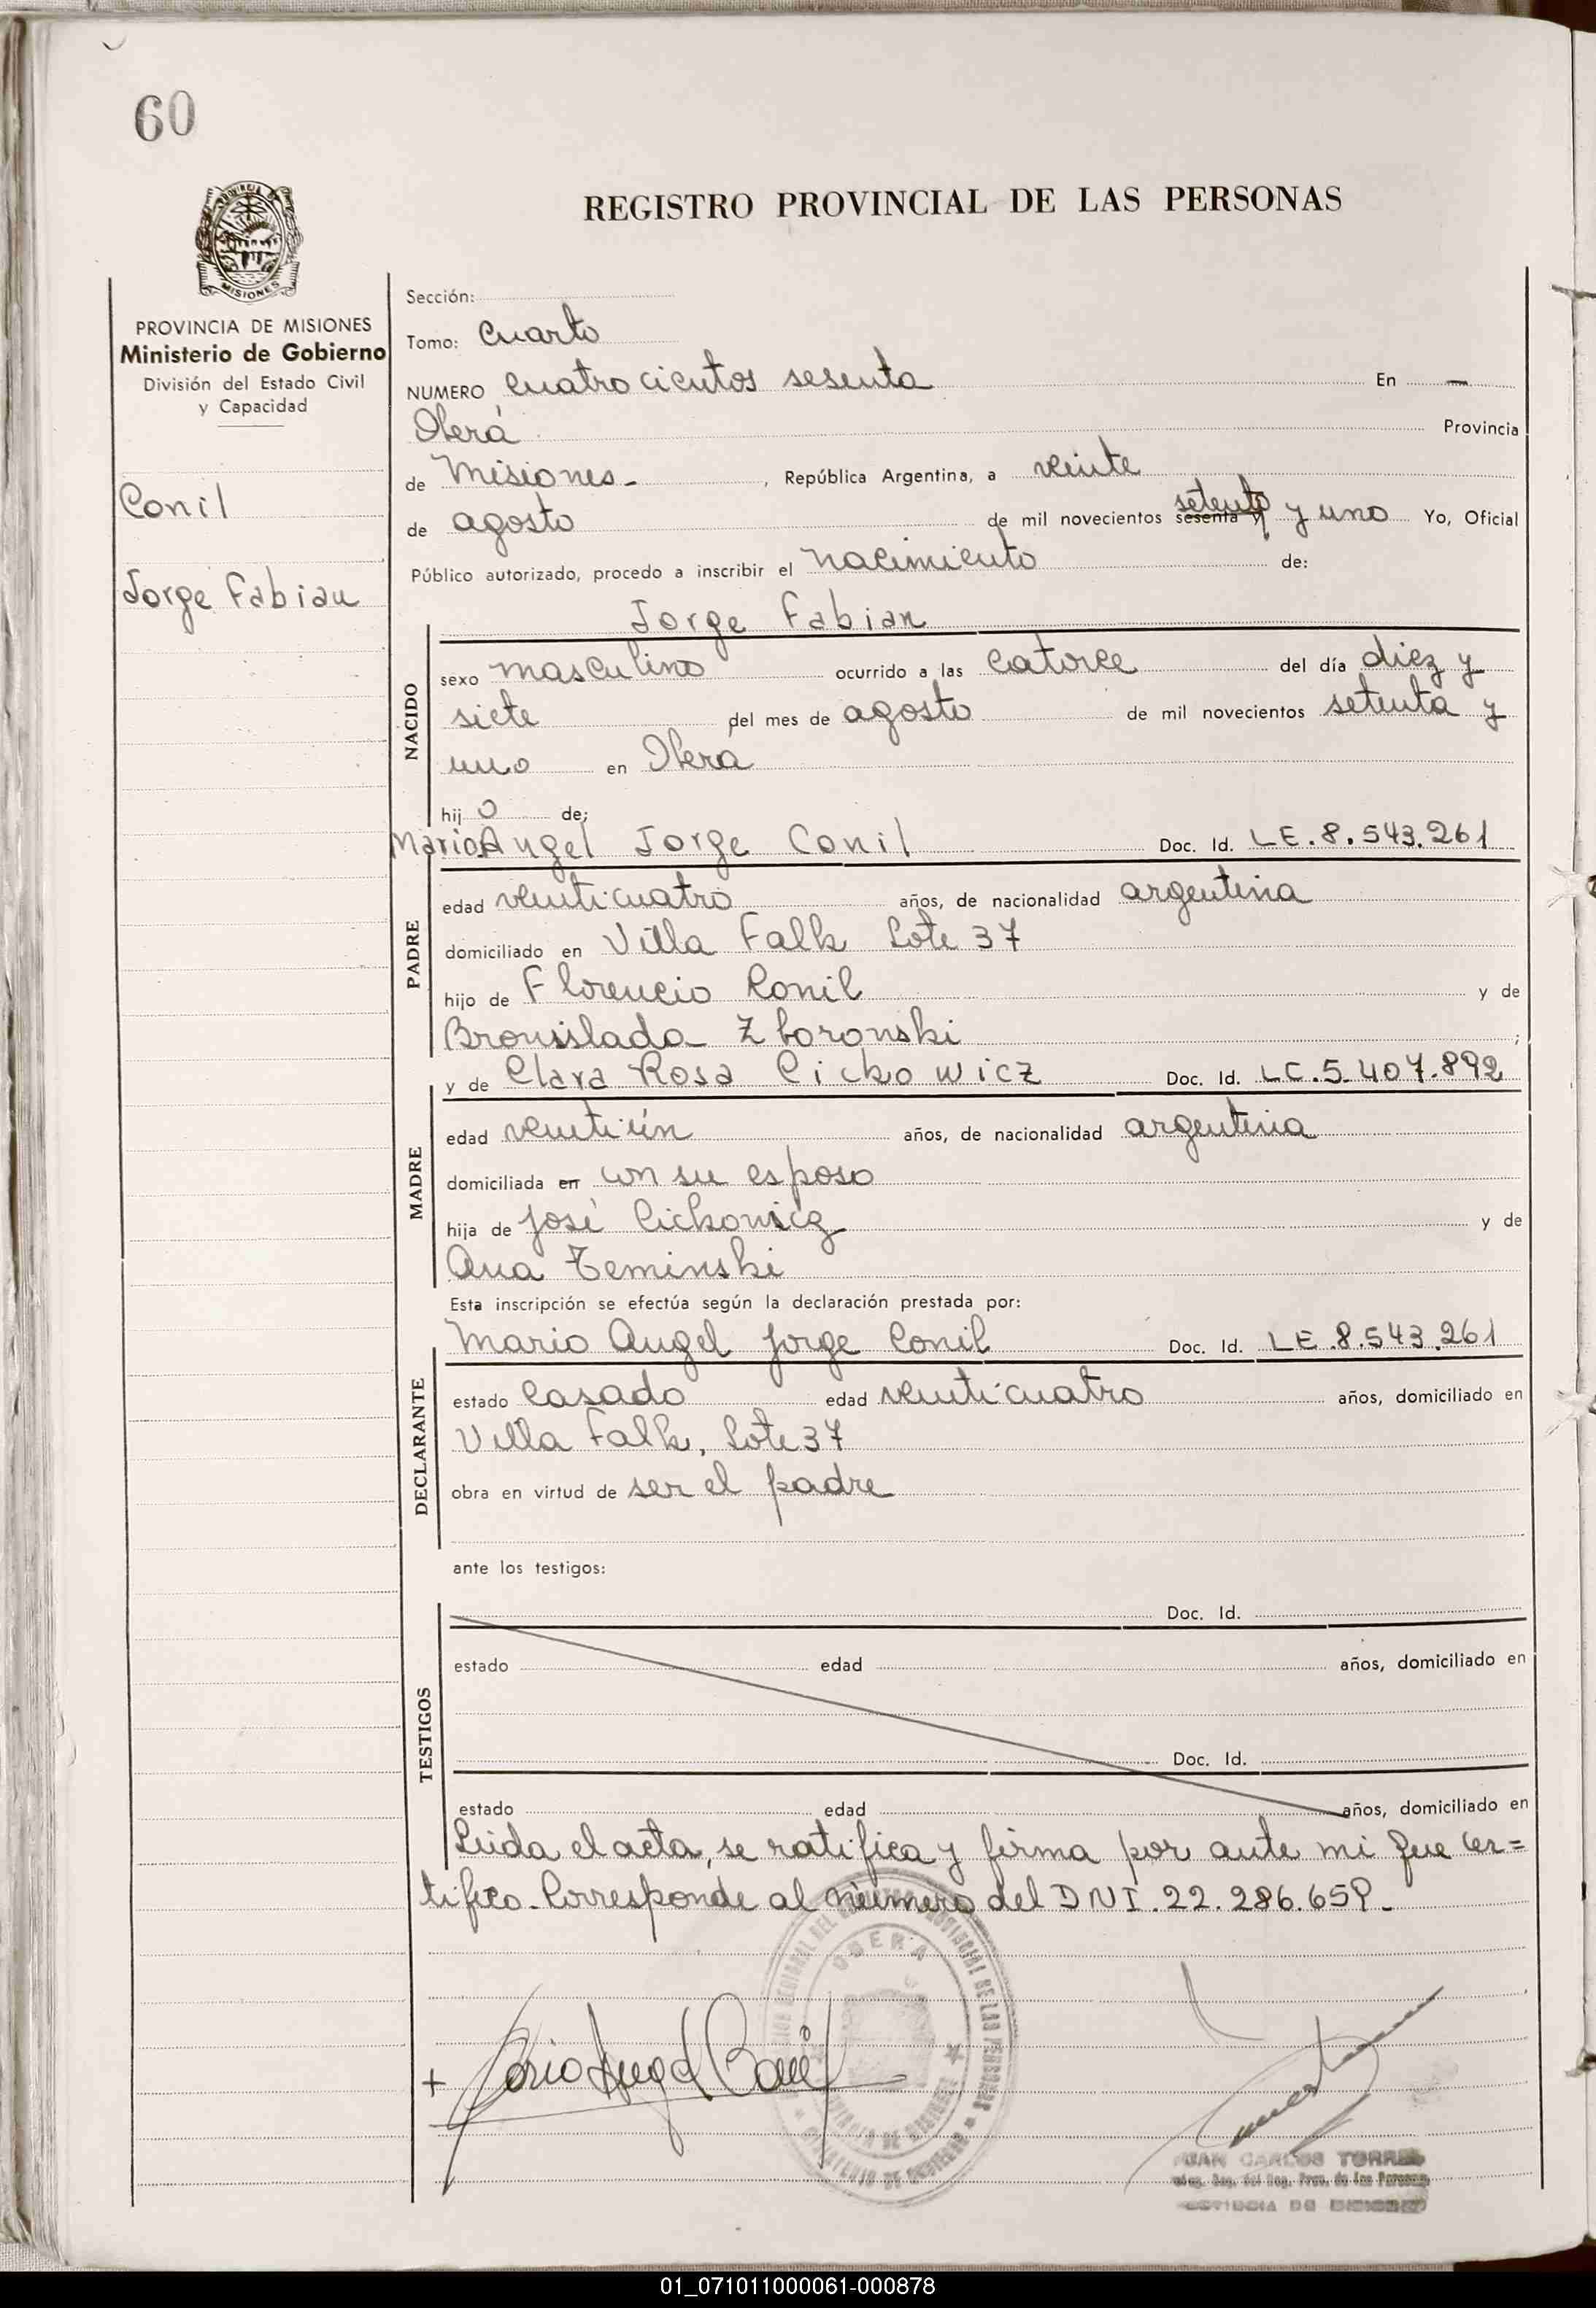 60
REGISTRO PROVINCIAL DE LAS PERSONAS
MISIONES
PROVINCIA DE MISIONES
Ministerio de Gobierno
División del Estado Civil
y Capacidad
Conil
Jorge Fabian
Sección:
Tomo: Cuarto
NUMERO cuatrocientos sesenta En —
Oberá Provincia
de Misiones - , República Argentina, a veinte
de agosto de mil novecientos sesenta y setenta y uno Yo, Oficial
Público autorizado, procedo a inscribir el nacimiento de:
Jorge Fabian
NACIDO
sexo masculino ocurrido a las catorce del día diez y
siete del mes de agosto de mil novecientos setenta y
uno en Oberá
hijo de:
Mario Angel Jorge Conil Doc. Id. LE.8.543.261
PADRE
edad venticuatro años, de nacionalidad argentina
domiciliado en Villa Falk Lote 37
hijo de Florencio Conil y de
Bronislada Zboronski ;
y de Clara Rosa Cickowicz Doc. Id. LC.5.407.892
MADRE
edad ventiún años, de nacionalidad argentina
domiciliada en con su esposo
hija de José Cickowicz y de
Ana Zeminski
Esta inscripción se efectúa según la declaración prestada por:
Mario Angel Jorge Conil Doc. Id. LE.8.543.261
DECLARANTE
estado casado edad venticuatro años, domiciliado en
Villa Falk, Lote 37
obra en virtud de ser el padre
ante los testigos:
TESTIGOS
Doc. Id.
estado edad años, domiciliado en
Doc. Id.
estado edad años, domiciliado en
Leida el acta, se ratifica y firma por ante mi que cer=
tifico. Corresponde al número del DNI. 22.286.659.
OBERA
Mario Angel Conil
JUAN CARLOS TORRES
PROVINCIA DE MISIONES
01_071011000061-000878